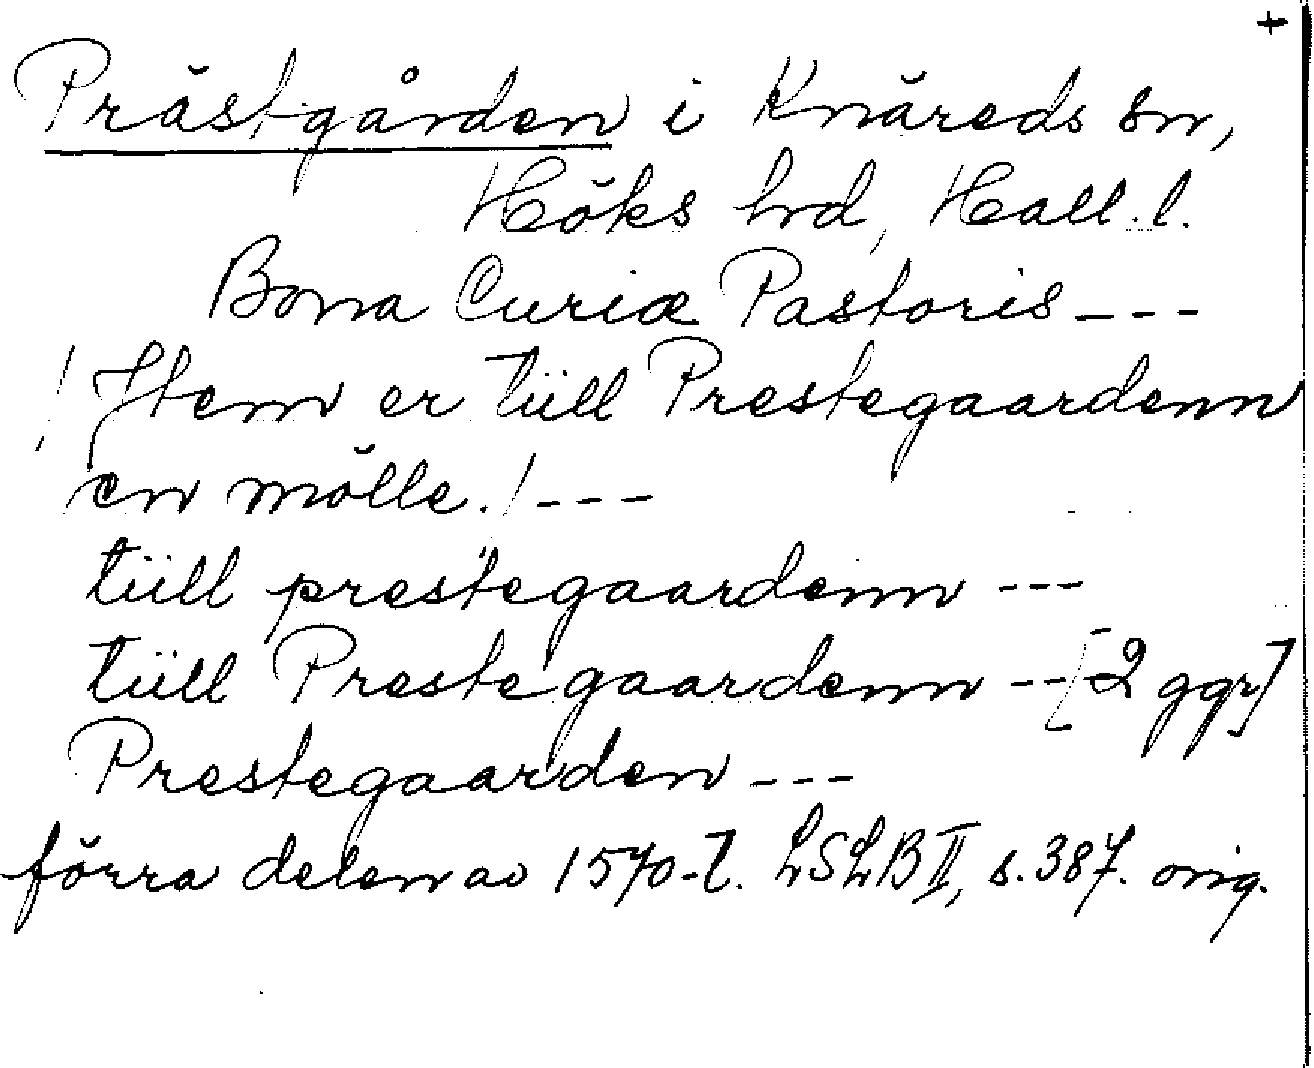 +
Prästgården i Knäreds sn,
Höks hrd, Hall. l.
Bona Curiæ Pastoris ---
/ Jtem er tiill Prestegaardenn
en mölle. / ---
tiill prestegaardenn ---
tiill Prestegaardenn -- [2 ggr]
Prestegaarden ---
förra delen av 1570-t. LSLB II, s. 387. orig.